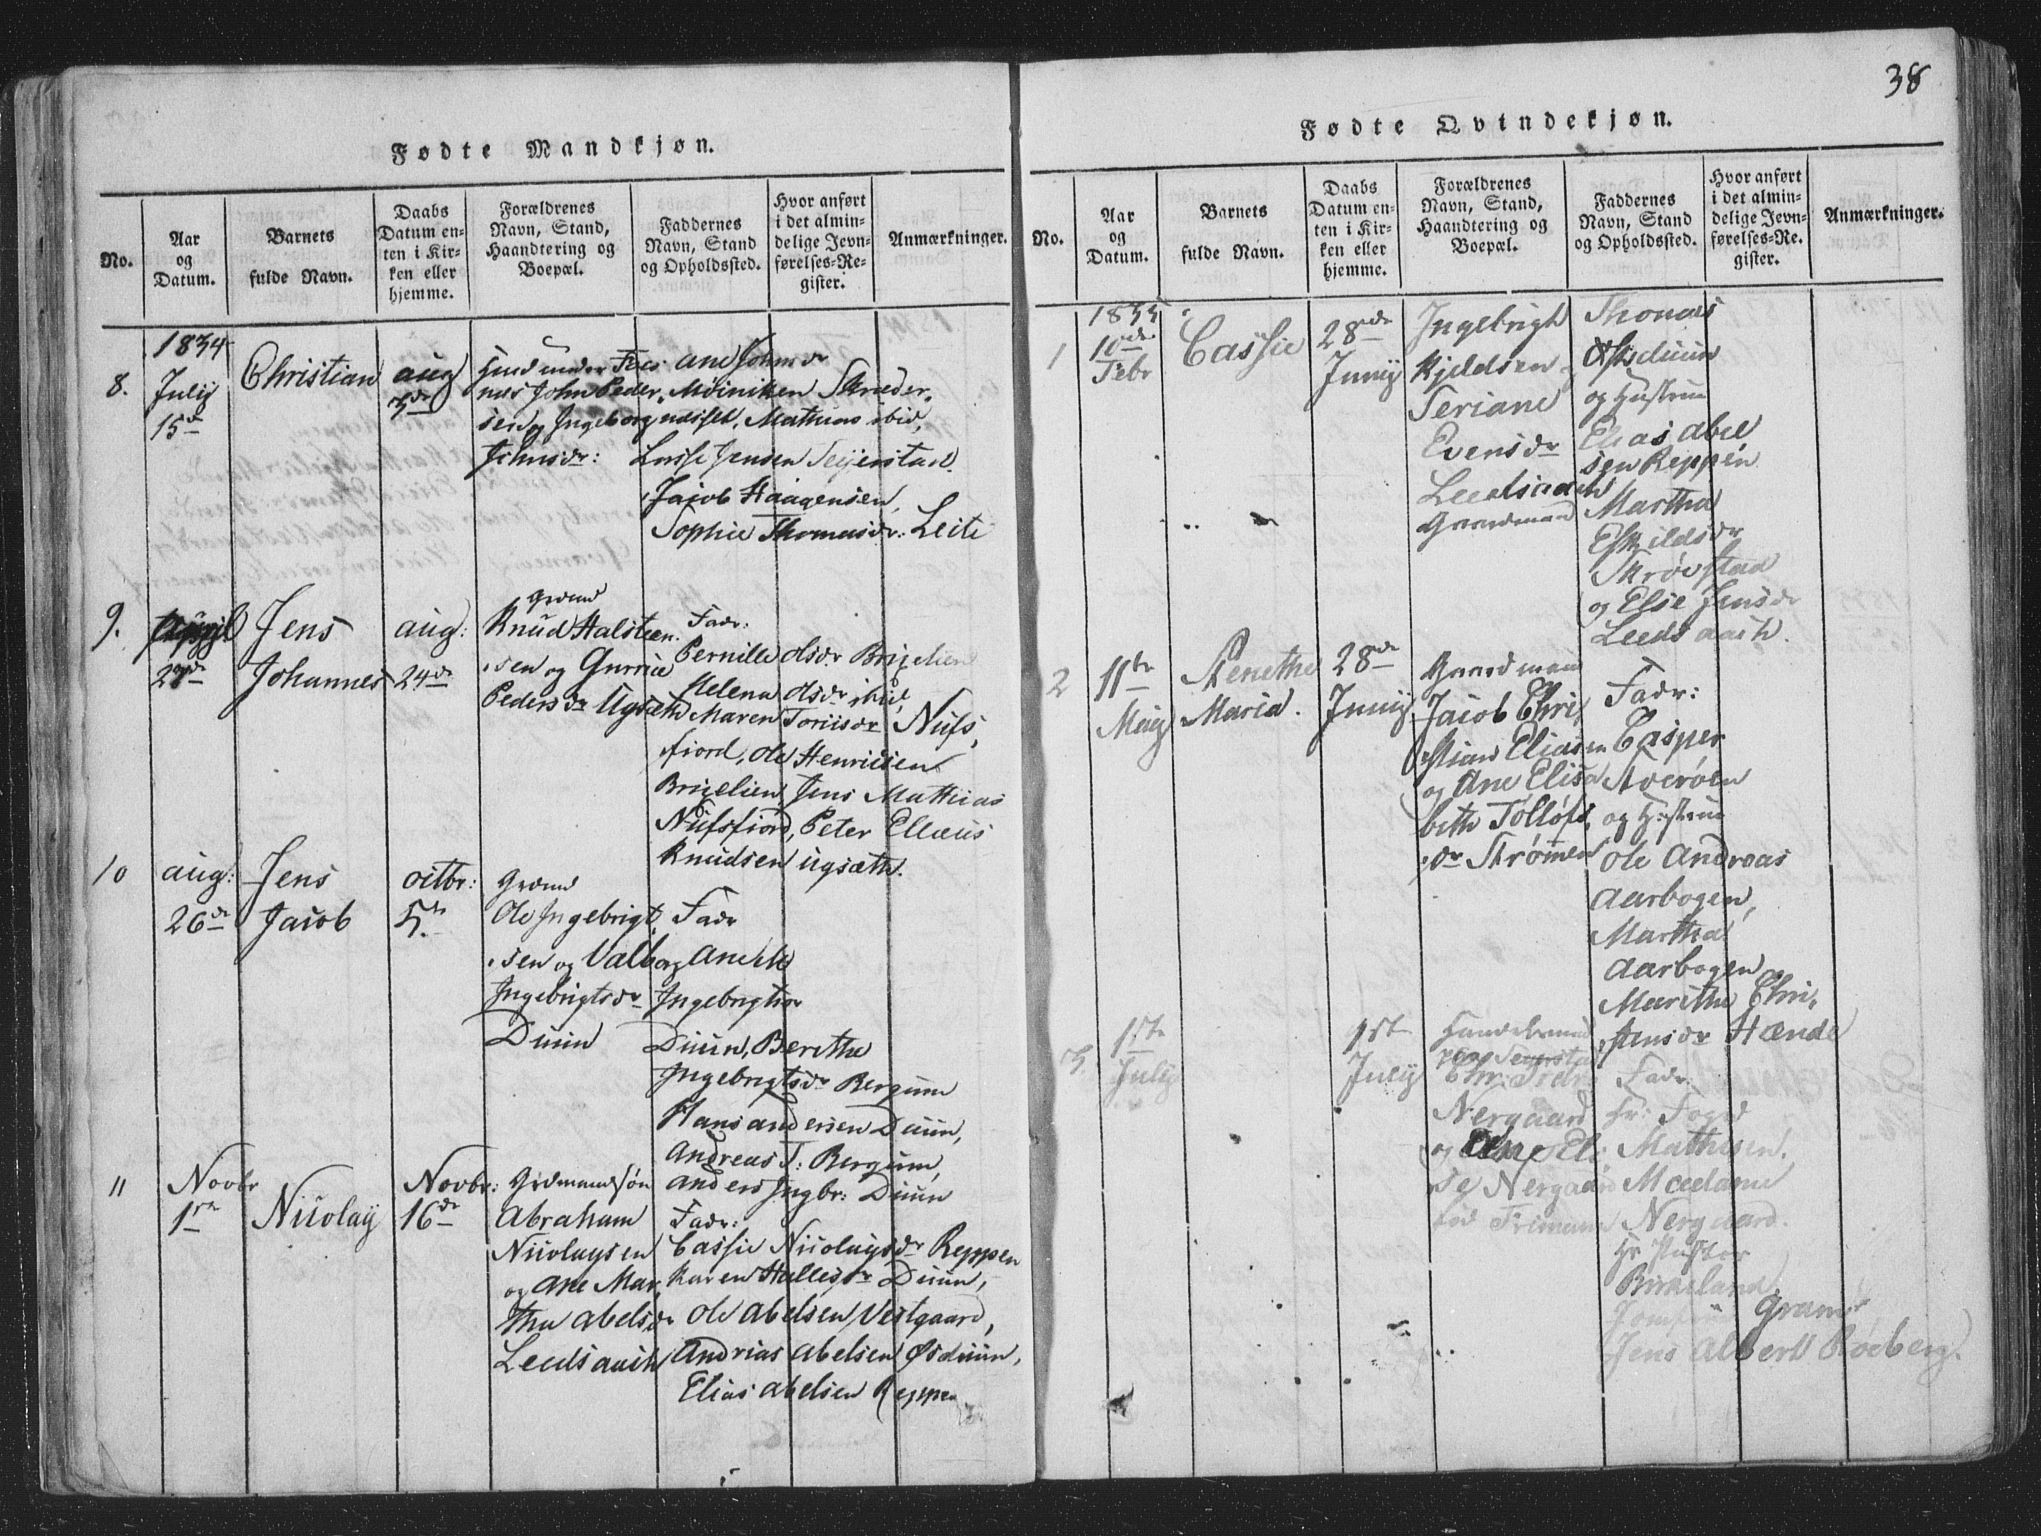 38
Fødte Mandkjøn.
No.
Aar
og
Datum.
Barnets
fulde Navn.
Daabs
Datum en-
ten i Kir-
ken eller
hjemme.
Forældrenes
Navn, Stand,
Haandtering og
Boepæl.
Faddernes
Navn, Stand
og Opholdssted.
Hvor anført
i det almin-
delige Jevn-
førelses-Re-
gister.
Anmærkninger.
8.
1834
July
15d
Christian
aug
3de
John Peder
sen og Ingeborg
Johnsdr:
ane Johnsdr
Mathias ibid,
Lasse Jensen Seijerstad.
Jacob Haagensen,
Sophie Thomasdr: Leite
9.
27de
Jens
Johannes
aug:
24de
Grdmd
Knud Halsteen
sen og Gurrie
Pedersdr Ugsæth
Fadr:
Pernille olsdr Brizelien
Helena olsdr ibid,
Maren Toriisdr Nufs,
fiord, Ole Henricsen
Brizelien, Jens Mathias
Nufsfiord, Peter Elleus
Knudsen Ugsæth.
10
aug:
26de
Jens
Jacob
octbr:
5te
Grdmd
Ole Ingebrigt,
sen og Valborg
Ingebrigtsdr
Duun
Fadr
Anethe
Ingebrigtsdr
Duun, Berethe
Ingebrigtsdr Bergum
Hans andersen Duun,
Andreas T: Bergum,
anders Ingbr: Duun
11
Novbr
1ste
Nicolay
Novbr:
16de
Grdmandssøn
Abraham
Nicolaysen
og ane Mar
tha abelsdr
Leedsaach
Fadr:
Cassie Nicolaysdr Reppen
Karen Hallesdr Duun,
Ole abelsen Vestgaard,
Andrias abelsen Øsduun,
Elias abelsen Reppen
Fødte Qvindekjøn.
No.
Aar
og
Datum.
Barnets
fulde Navn.
Daabs
Datum en-
ten i Kir-
ken eller
hjemme.
Forældrenes
Navn, Stand,
Haandtering og
Boepæl.
Faddernes
Navn, Stand
og Opholdssted.
Hvor anført
i det almin-
delige Jevn-
førelses-Re-
gister.
Anmærkninger.
1
1835
10de
Febr
Cassie
28de
Juny
Ingebrigh
Kjeldsen
Seriane
Evensdr
Leedsaach
Gaardmand
Thomas
Øsduun
og Hustrue
Elias abel
sen Reppen
Martha
Eskildsdr
Skrøvstad
og Else Jensdr
Leedsaach.
2
11te
May
Maria.
28de
Juny
Gaardmand
Jacob Chri,
stian Eliasen
og Ane Elisa
beth Tollofs,
dr Strømen
Fadr:
Casper
Averøen
og Hustrue
Ole Andreas
Aarbogen,
Martha
Aarbogen
Marithe Chri,
stensdr Hænde
3
1ste
July
1st
July
Handelsmand
Nergaard
og
se Nergaard
Fadr
Hr: Foged
Mathisen.
Madame
Nergaard.
Hr Pastor
Birkeland
Jomfrue Gram
Jens Albert Rodberg.